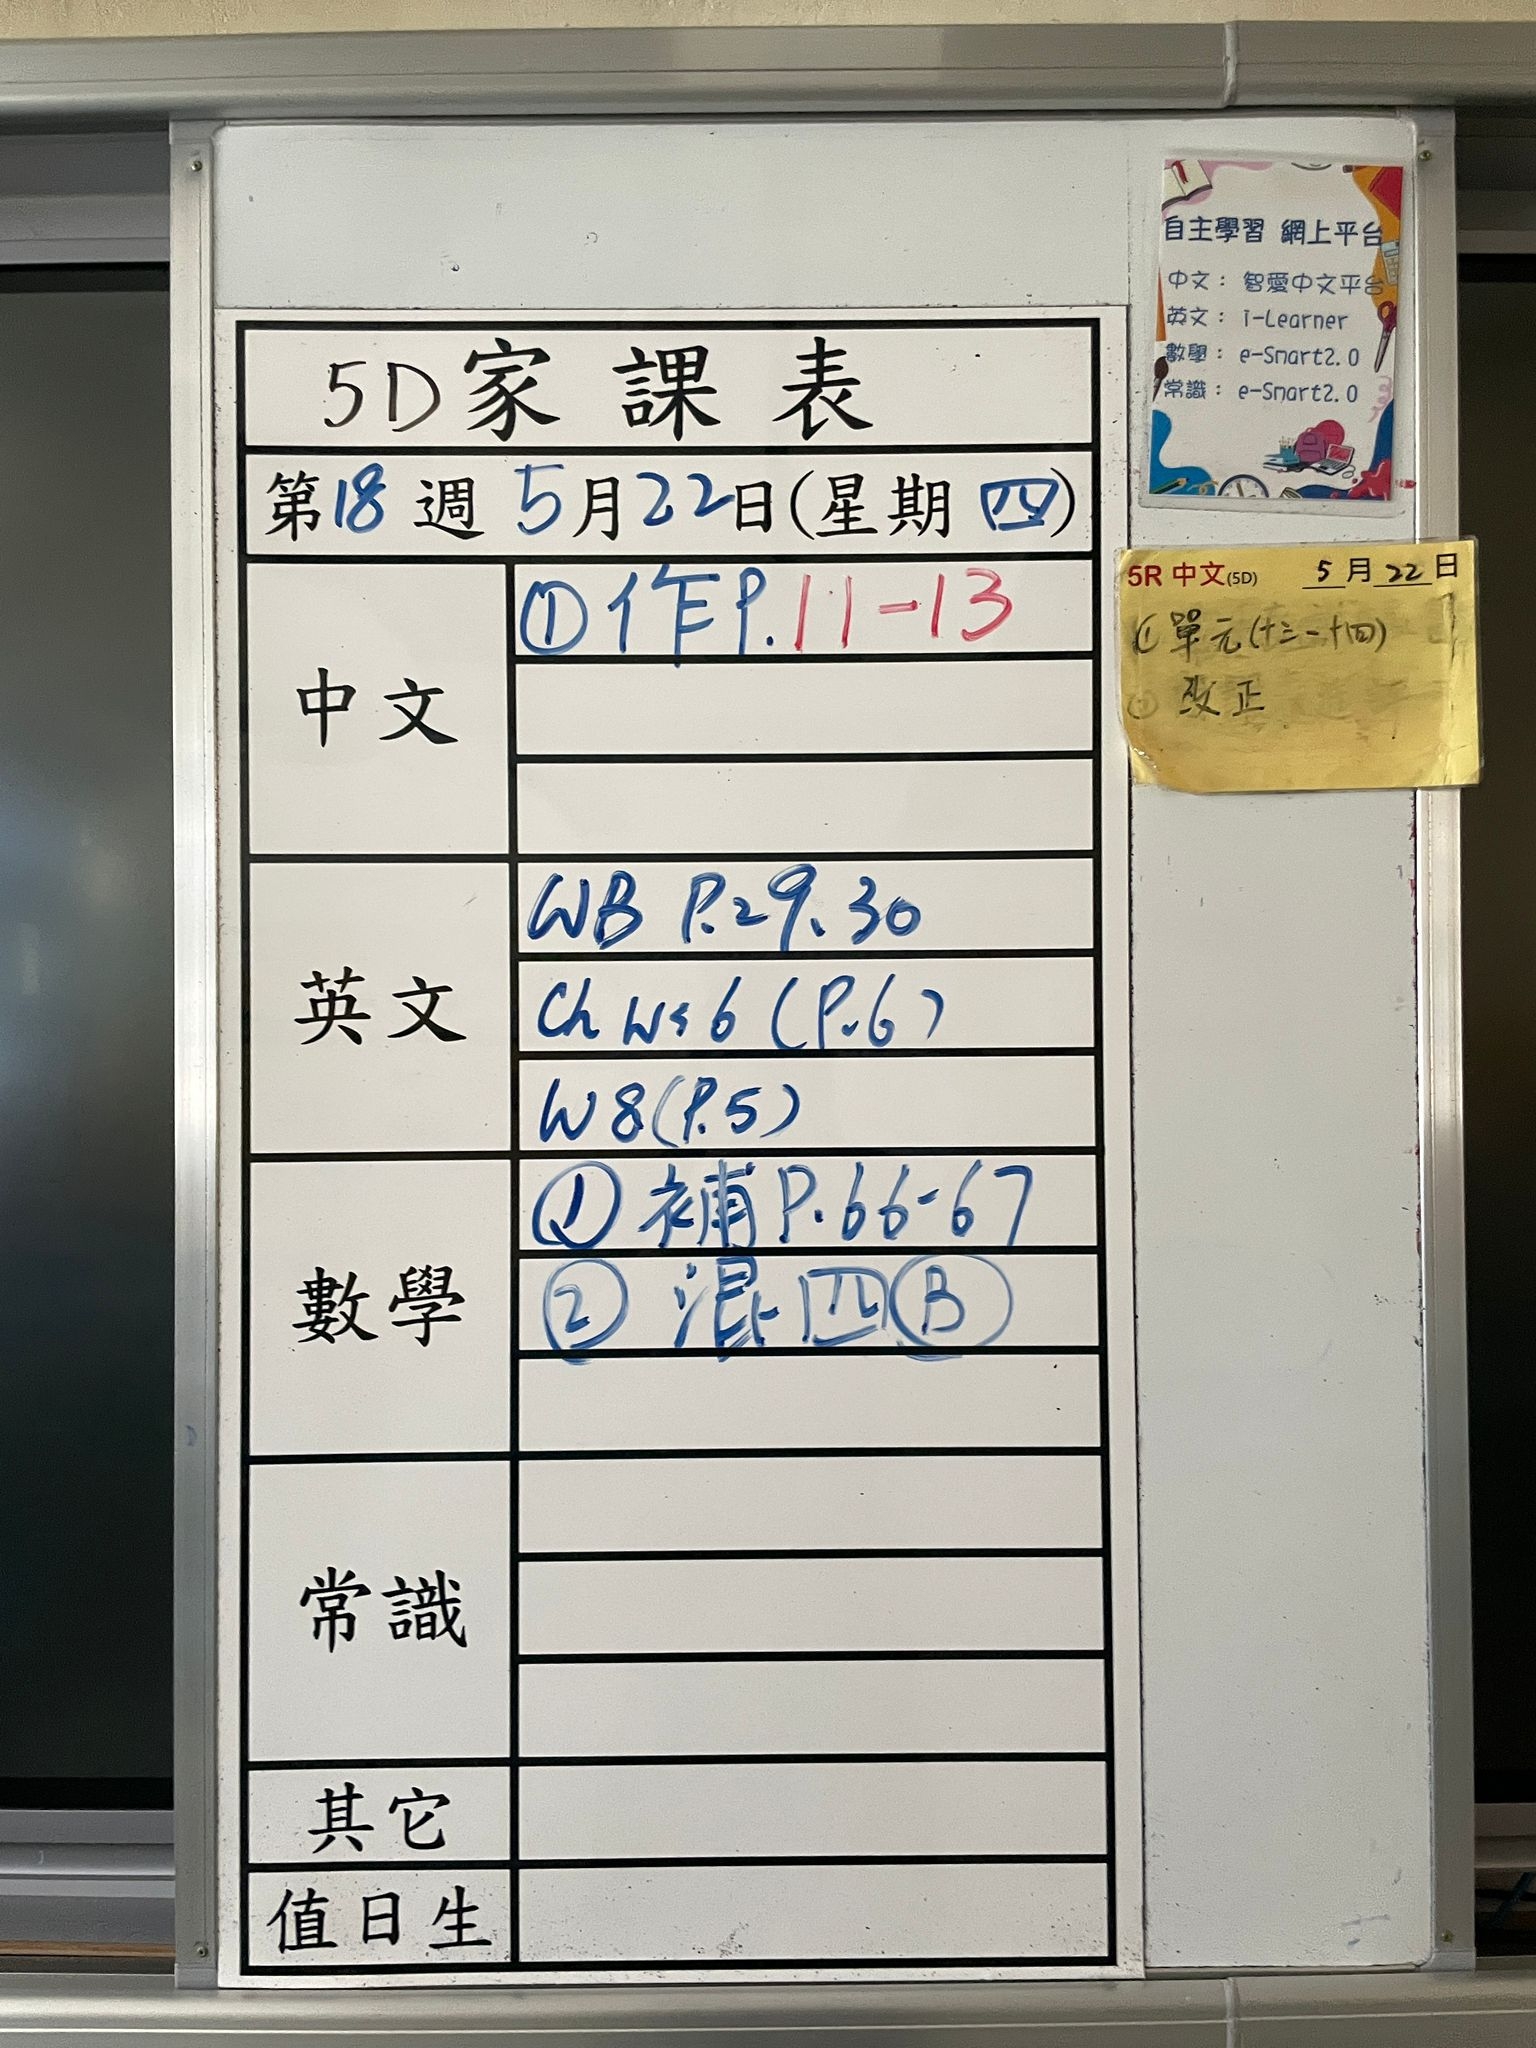 自主學習 網上平台
中文： 智愛中文平台
英文： i-Learner
數學： e-Smart2.0
常識： e-Smart2.0
5D家課表
第18週 5月22日(星期四)
5R 中文(5D) 5月22日
① 單元(十三-十四)
改正
中文
① 作P.11-13
英文
WB P.29、30
Ch Ws 6 (P.6)
W8(P.5)
數學
① 補P.66-67
② 混-四Ⓑ
常識
其它
值日生